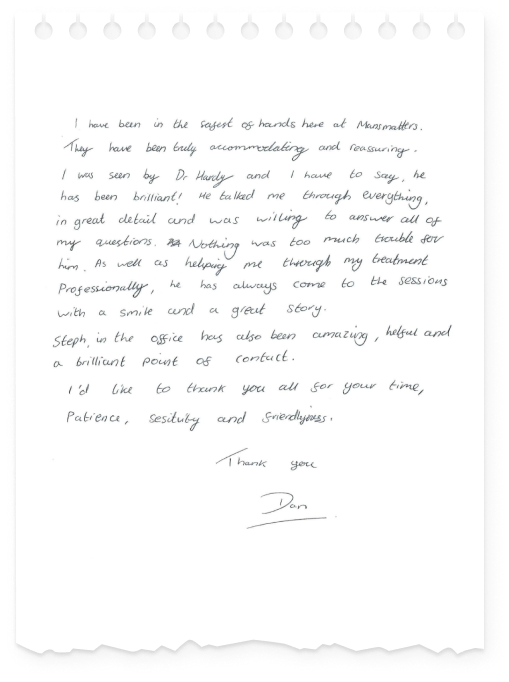 I have been in the safest of hands here at Mansmatters.
They have been truly accommodating and reassuring.
I was seen by Dr Hardy and I have to say, he
has been brilliant! He talked me through everything,
in great detail and was willing to answer all of
my questions. Nothing was too much trouble for
him. As well as helping me through my treatment
Professionally, he has always come to the sessions
with a smile and a great story.
Steph, in the office has also been amazing, helful and
a brilliant point of contact.
I'd like to thank you all for your time,
Patience, and
Thank you
Dan